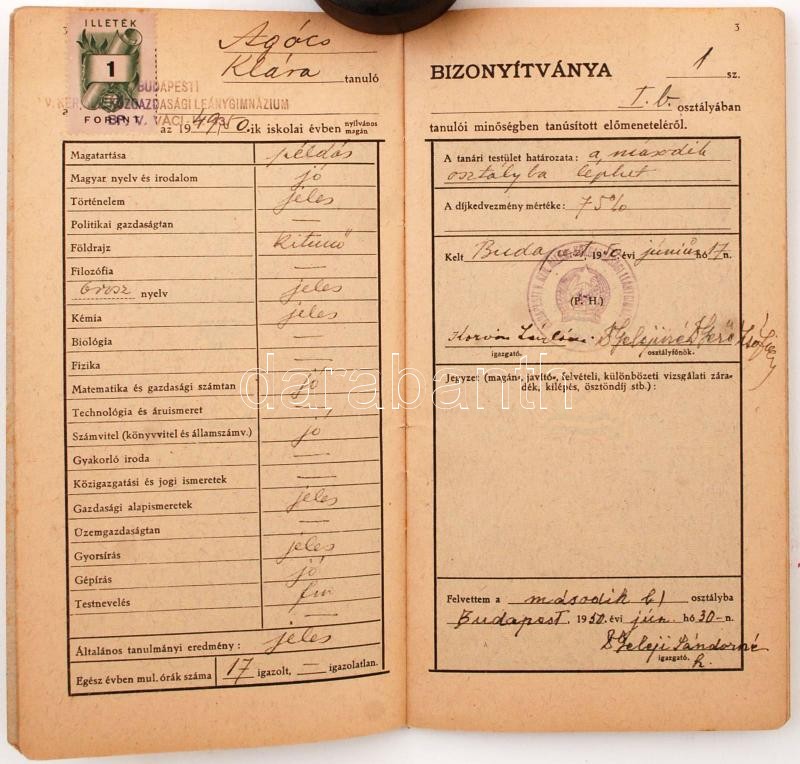 ILLETÉK
1
FORINT
Agócs
Klára tanuló
BUDAPESTI
V. KER. KÖZGAZDASÁGI LEÁNYGIMNÁZIUM
BP. V. VÁCI
az 1949/50.-ik iskolai évben nyilvános
magán
Magatartása példás
Magyar nyelv és irodalom jó
Történelem jeles
Politikai gazdaságtan —
Földrajz kitünő
Filozófia —
Orosz nyelv jeles
Kémia jeles
Biológia —
Fizika —
Matematika és gazdasági számtan jó
Technológia és áruismeret —
Számvitel (könyvvitel és államszámv.) jó
Gyakorló iroda —
Közigazgatási és jogi ismeretek —
Gazdasági alapismeretek jeles
Üzemgazdaságtan —
Gyorsírás jeles
Gépírás jó
Testnevelés fm
—
Általános tanulmányi eredmény: jeles
Egész évben mul. órák száma 17 igazolt, — igazolatlan.
3
BIZONYÍTVÁNYA 1 sz.
I. b. osztályában
tanulói minőségben tanúsított előmeneteléről.
A tanári testület határozata: a második
osztályba léphet
A díjkedvezmény mértéke: 75%
Kelt Budapest, 1950. évi június hó 17 n.
(P. H.)
igazgató. osztályfőnök.
Jegyzet (magán-, javító-, felvételi, különbözeti vizsgálati zára-
dék, kilépés, ösztöndíj stb.):
Felvettem a második b) osztályba
Budapest 1950. évi jún. hó 30-n.
Geleji Sándorné
igazgató. h.
darabanth